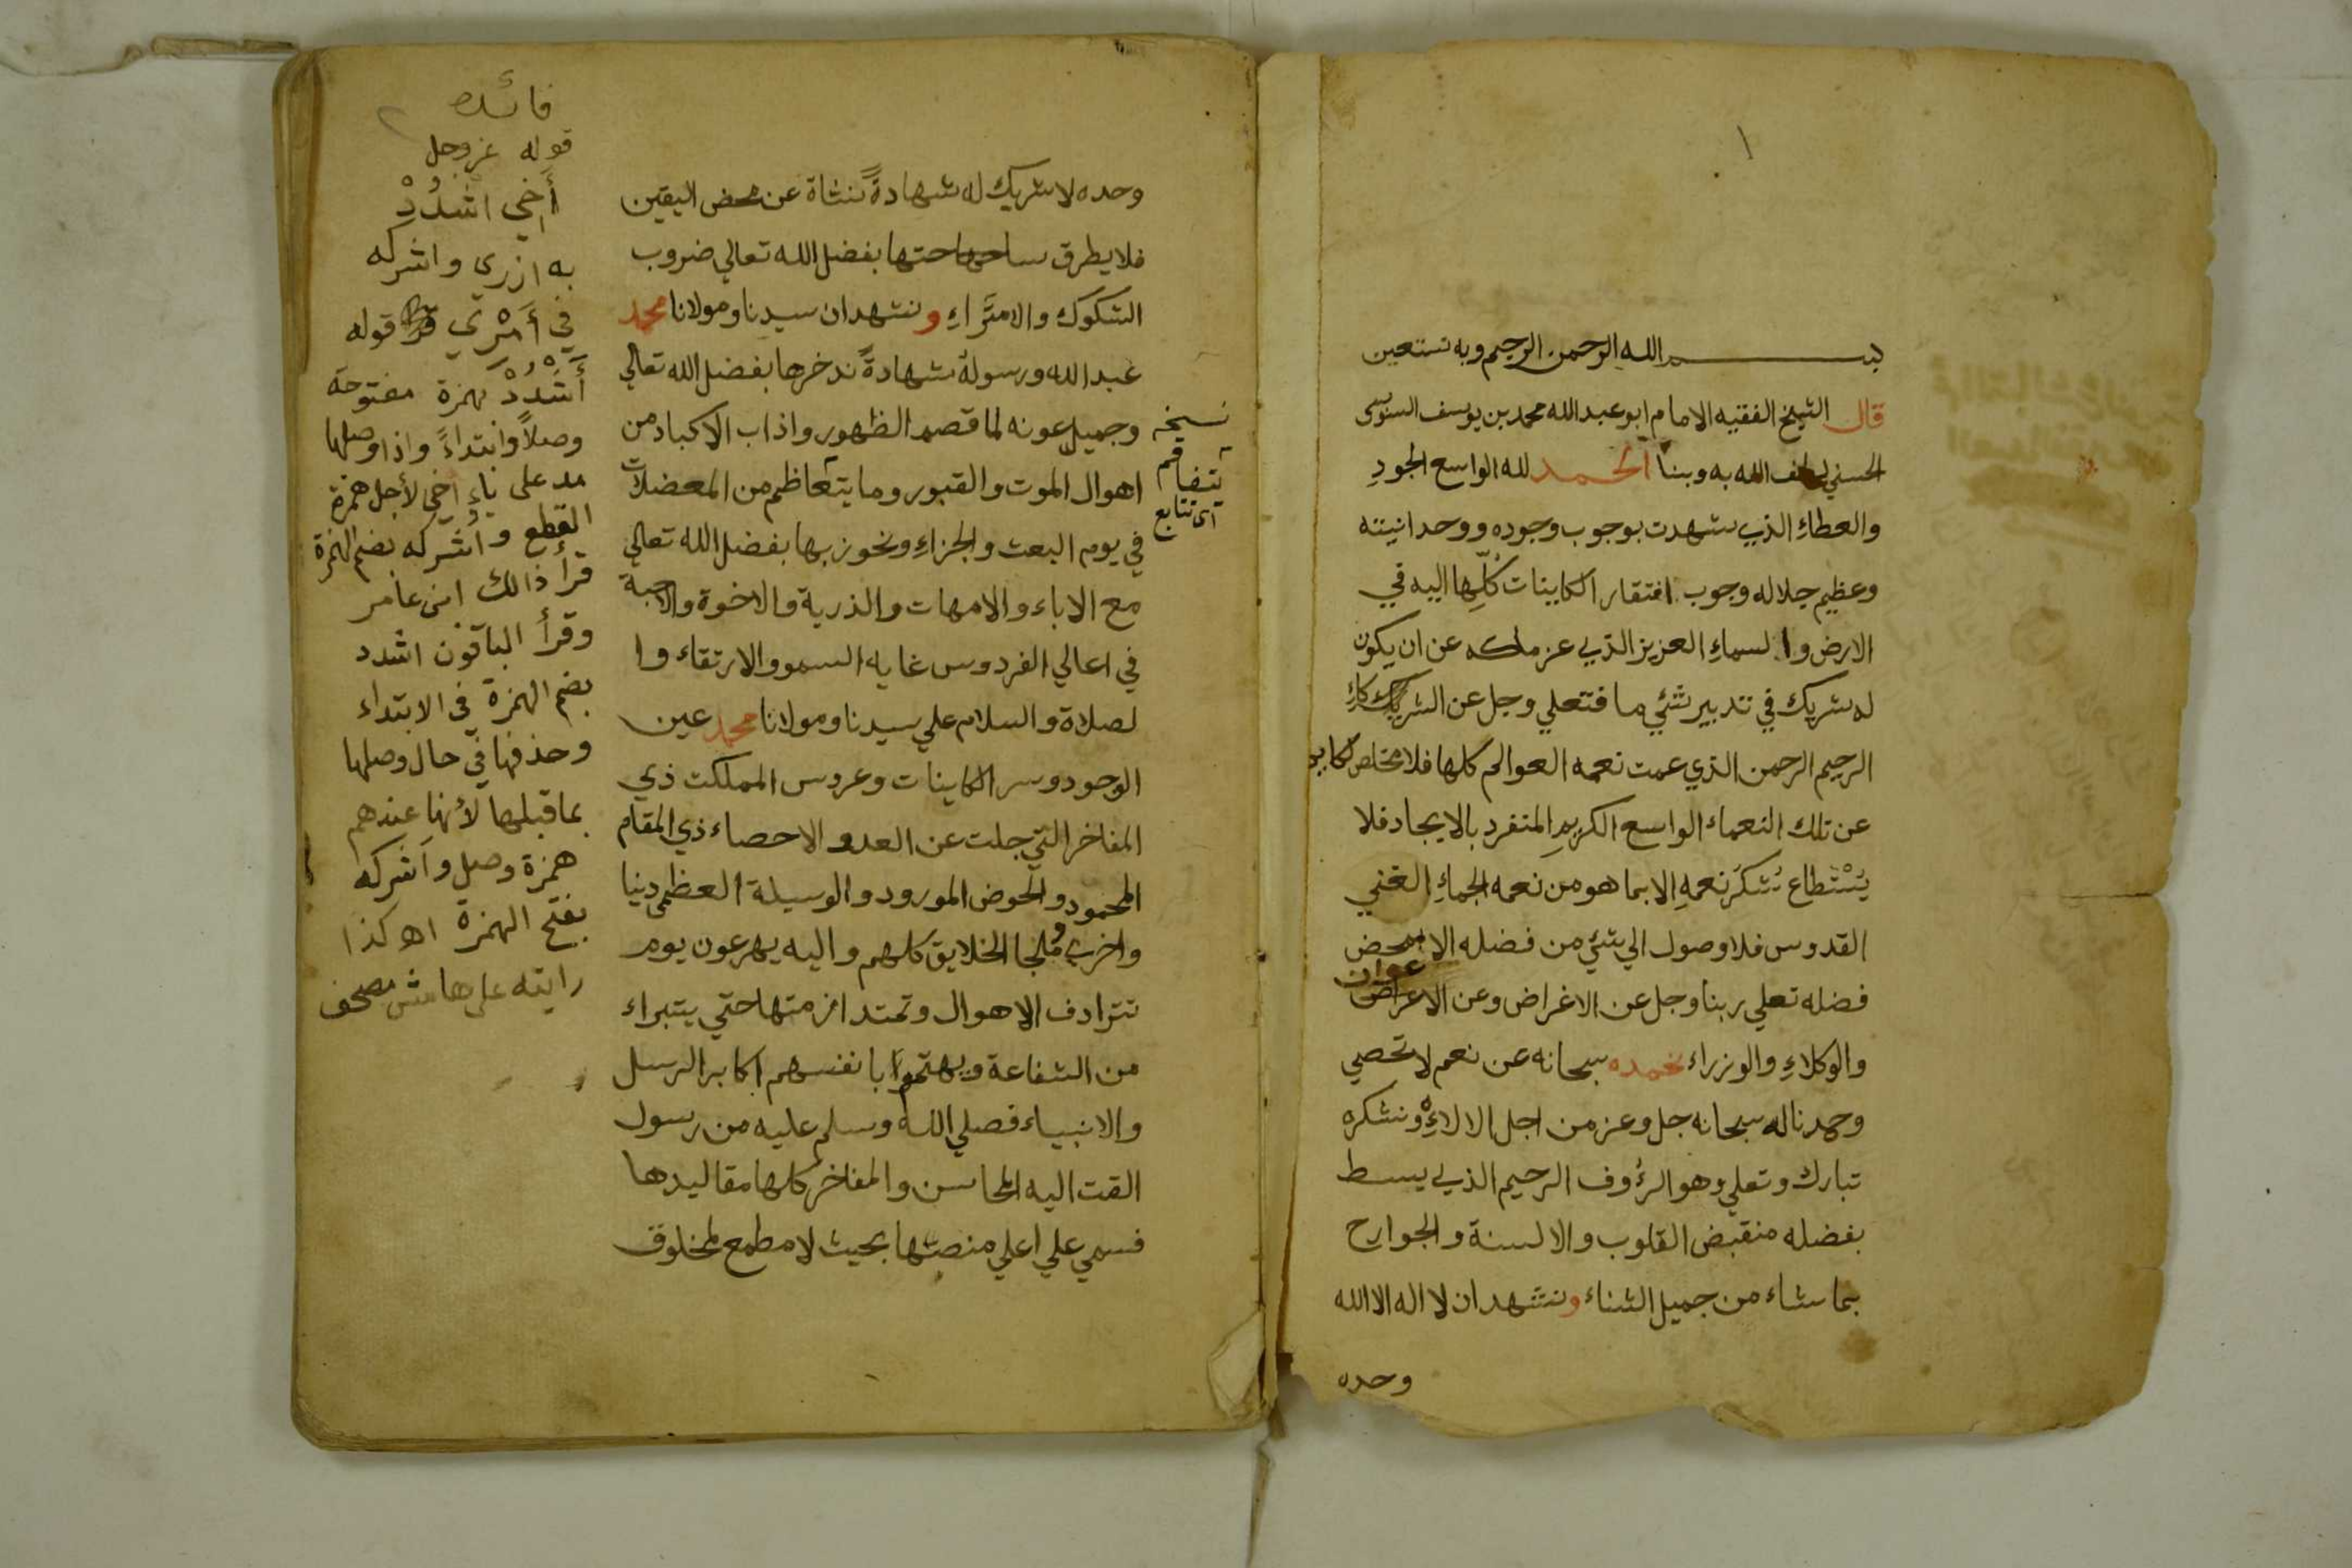 ١
بسم الله الرحمن الرحيم وبه نستعين
قال الشيخ الفقيه الامام ابو عبد الله محمد بن يوسف السنوسي
الحسني لطف الله به وبنا الحمد لله الواسع الجودِ
والعطاءِ الذي شهدت بوجوب وجوده ووحدانيته
وعظيم جلاله وجوب افتقار الكاينات كُلِّها اليه في
الارض والسماءِ العزيز الذي عز ملكه عن ان يكون
له شريك في تدبير شئي ما فتعلي وجل عن الشركاءِ
الرحيم الرحمن الذي عمت نعمه العوالم كلها فلا مخلص لكاين
عن تلك النعماء الواسع الكريمِ المنفرد بالايجاد فلا
يُسْتَطاع شُكرُ نعمهِ الا بما هو من نعمه الجماءِ الغني
القدوس فلا وصول الي شئي من فضله الا بمحض
فضله تعلي ربنا وجل عن الاغراض وعن الاعوان
والوكلاءِ والوزراء نحمده سبحانه عن نعم لا تحصي
وحمدنا له سبحانه جل وعز من اجل الالاءِ ونشكره
تبارك وتعلي وهو الرؤوف الرحيم الذي يبسط
بفضله منقبض القلوب والالسنة والجوارح
بما شاء من جميل الثناء ونشهد ان لا اله الا الله
وحده
وحده لا شريك له شهادةً نشاة عن محض اليقين
فلا يطرق ساحتها بفضل الله تعالي ضروب
الشكوك والامتَراءِ ونشهد ان سيدنا ومولانا محمد
عبد الله ورسوله شهادةً ندخرها بفضل الله تعالي
وجميل عونه لما قصم الظهور واذاب الاكباد من
اهوال الموت والقبور وما يتعاظم من المعضلات
في يوم البعث والجزاءِ ونحوز بها بفضل الله تعالي
مع الاباء والامهات والذرية والاخوة والاحبة
في اعالي الفردوس غايه السمو والارتقاء وا
لصلاة والسلام علي سيدنا ومولانا محمد عين
الوجود وسر الكاينات وعروس المملكت ذي
المفاخر التي جلت عن العد والاحصاء ذي المقام
المحمود والحوض المورود والوسيلة العظمي دنيا
واخري وملجا الخلايق كلهم واليه يهرعون يوم
تترادف الاهوال وتمتد ازمتها حتي يتبراء
من الشفاعة ويهتموا بانفسهم اكابر الرسل
والانبياء فصلي الله وسلم عليه من رسول
القت اليه المحاسن والمفاخر كلها مقاليدها
فسمي علي اعلي منصتها بحيث لا مطمع لمخلوق
نسخه
يتفاقم
اي تتابع
٢
فائده
قوله عز وجل
أَخِي اشدُدْ
به ازري واشركه
في أَمْرِي قوله
أَشْدُدْ بهمزة مفتوحة
وصلاً وابتداءً واذا وصلها
مد على ياءِ اخي لأجل همزة
القطع وأُشركه بضم الهمزة
قرأ ذالك ابن عامر
وقرأ الباقون اشدد
بضم الهمزة في الابتداء
وحذفها في حال وصلها
بما قبلها لأنها عندهم
همزة وصل وأَشركه
بفتح الهمزة اه كذا
رايته على هامش مصحف